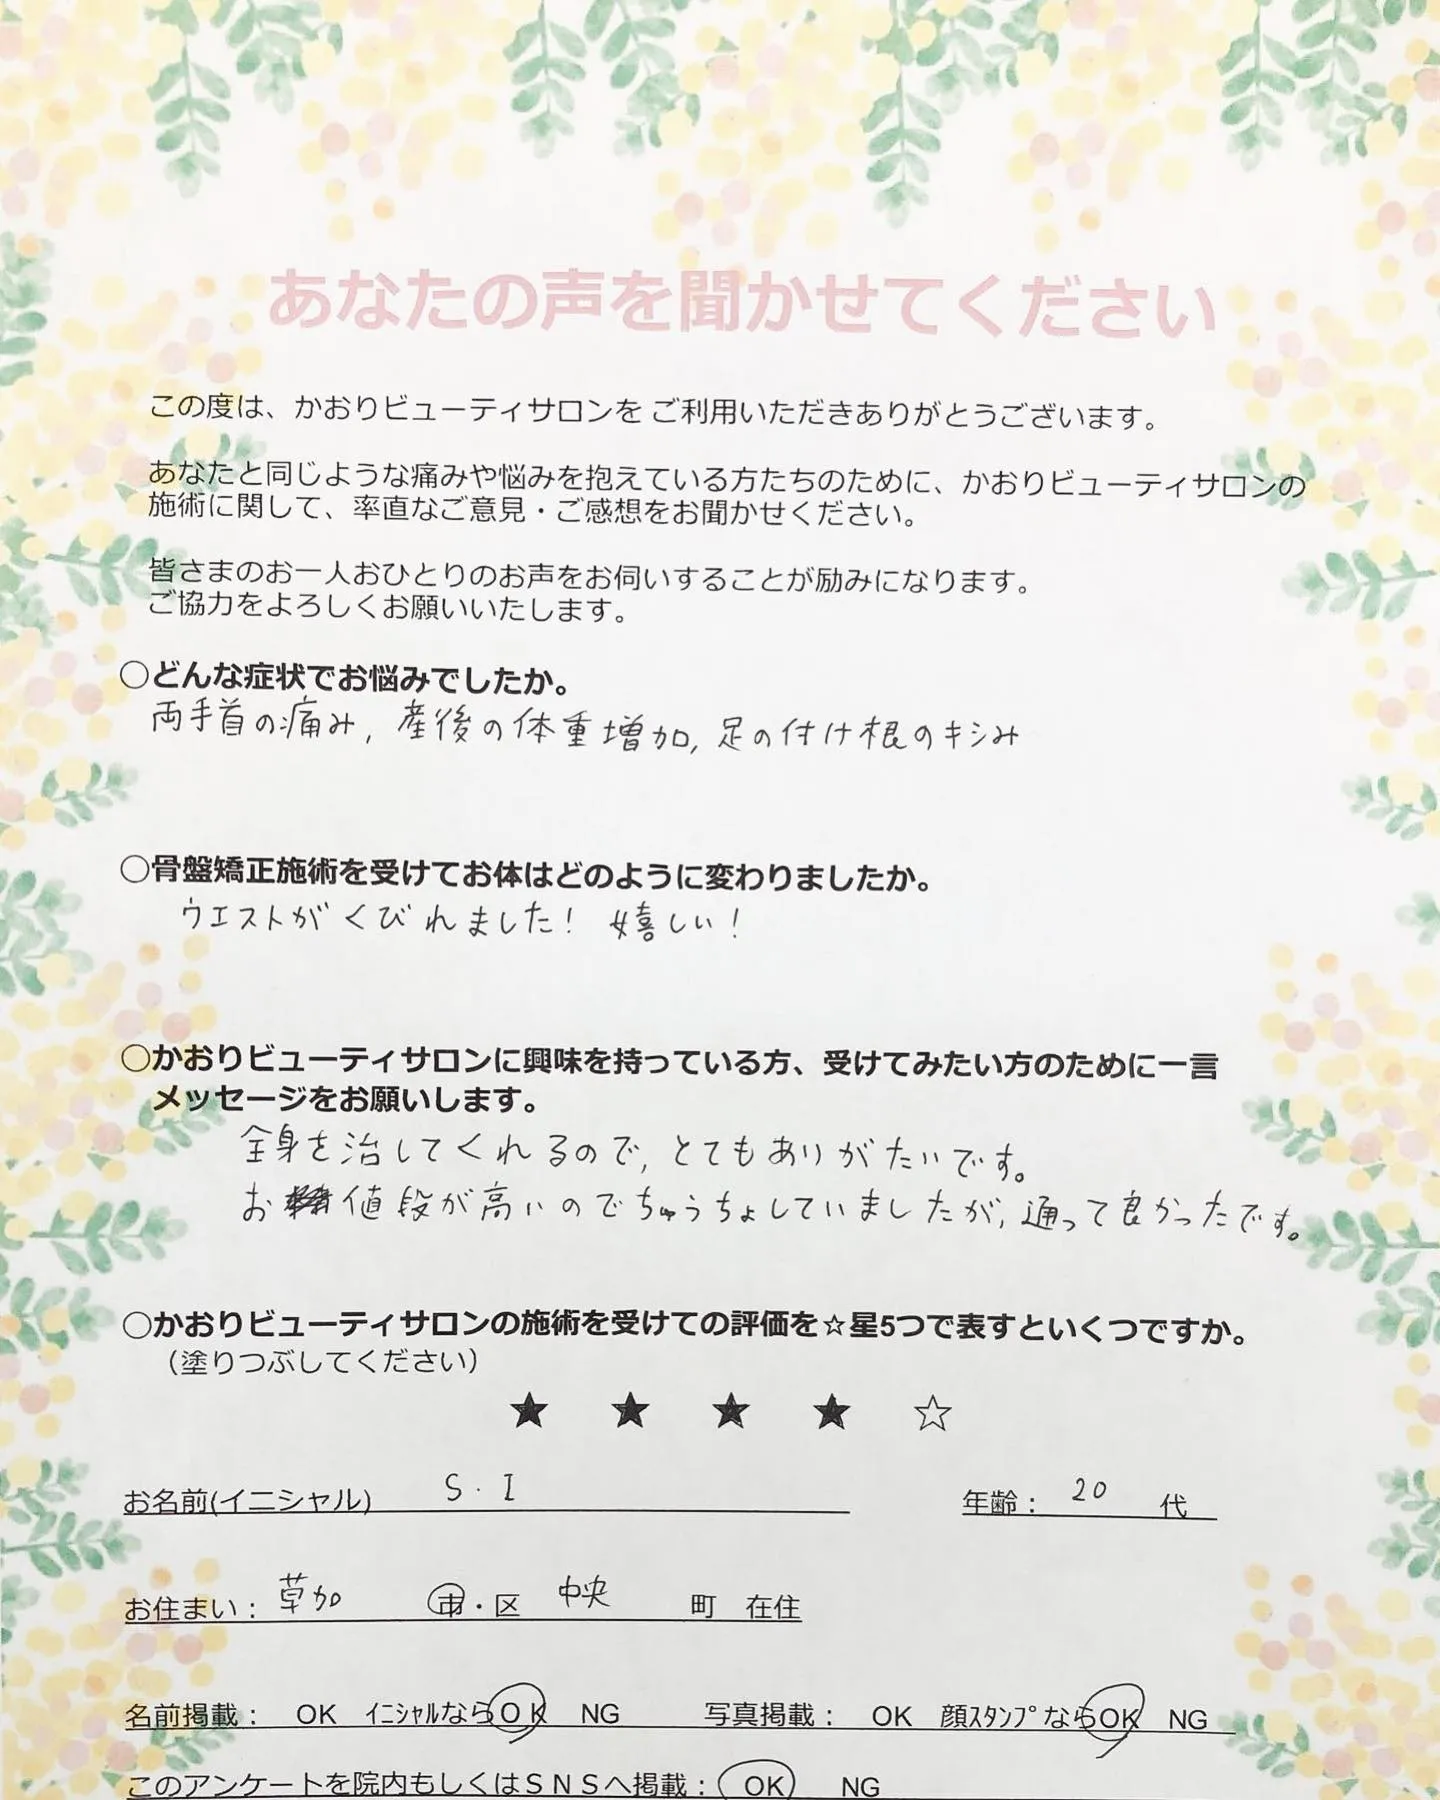 あなたの声を聞かせてください
この度は、かおりビューティサロンを ご利用いただきありがとうございます。
あなたと同じような痛みや悩みを抱えている方たちのために、かおりビューティサロンの
施術に関して、率直なご意見・ご感想をお聞かせください。
皆さまのお一人おひとりのお声をお伺いすることが励みになります。
ご協力をよろしくお願いいたします。
○どんな症状でお悩みでしたか。
両手首の痛み, 産後の体重増加, 足の付け根のキシみ
○骨盤矯正施術を受けてお体はどのように変わりましたか。
ウエストがくびれました! 嬉しい!
○かおりビューティサロンに興味を持っている方、受けてみたい方のために一言
メッセージをお願いします。
全身を治してくれるので, とてもありがたいです。
お値段が高いのでちゅうちょしていましたが, 通って良かったです。
○かおりビューティサロンの施術を受けての評価を☆星5つで表すといくつですか。
（塗りつぶしてください）
★ ★ ★ ★ ☆
お名前(イニシャル) S.I 年齢： 20 代
お住まい： 草加 市・区 中央 町 在住
名前掲載： OK イニシャルならOK NG 写真掲載： OK 顔スタンプならOK NG
このアンケートを院内もしくはＳＮＳへ掲載： OK NG